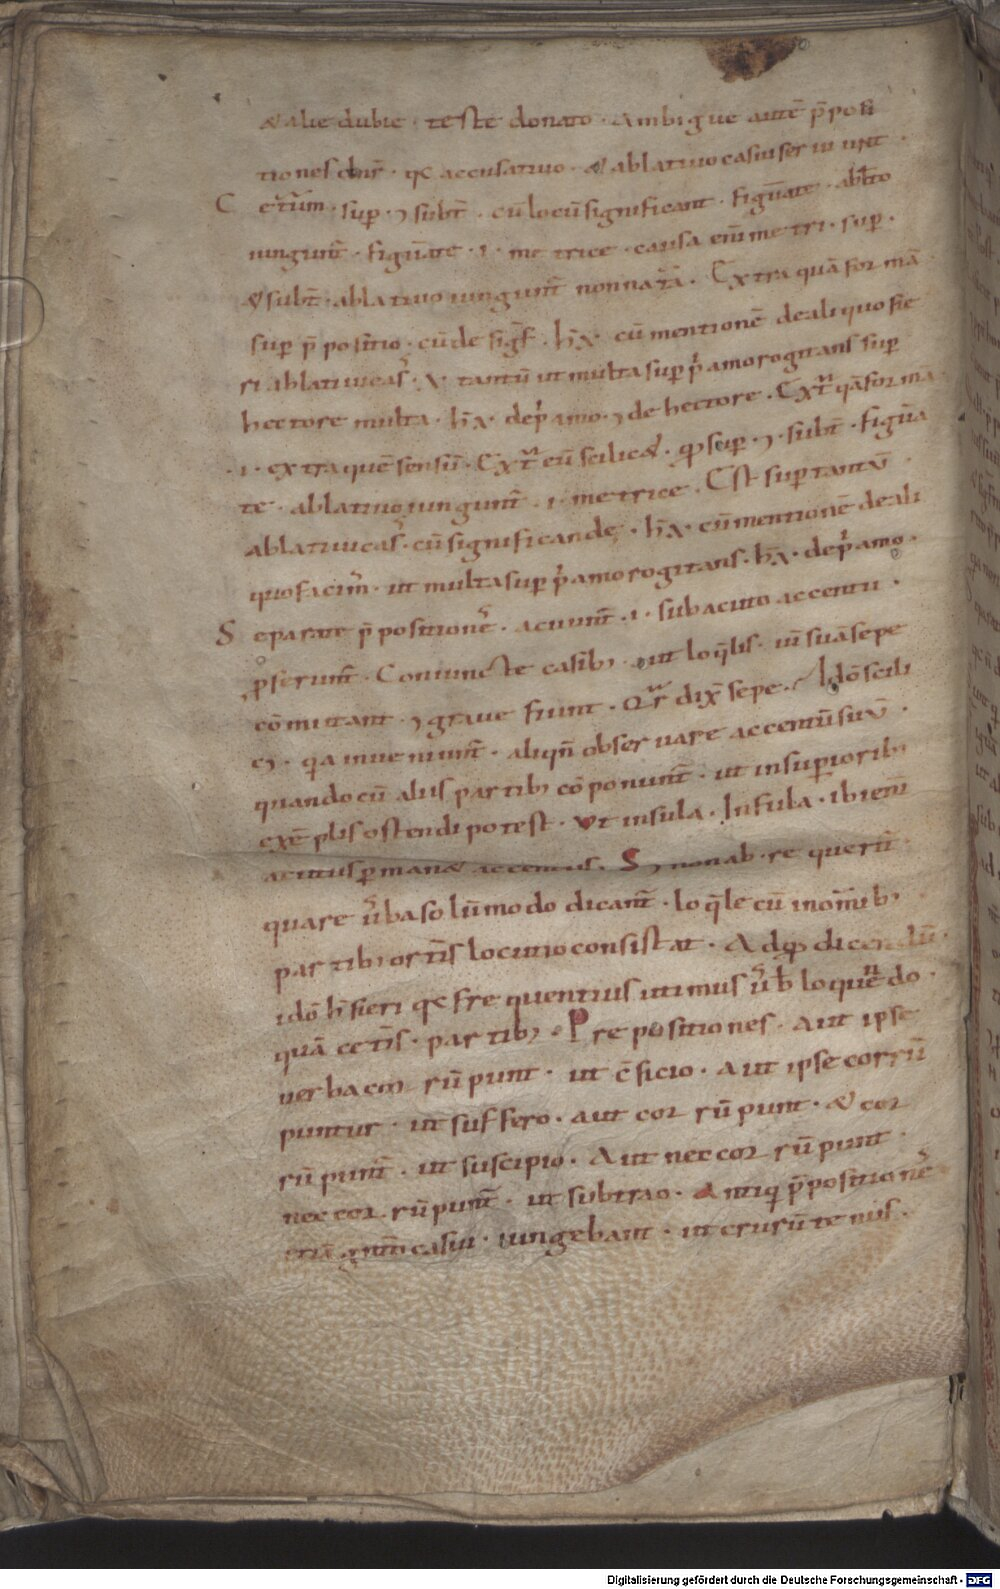 & alie dubie · teste donato · Ambigue autē p̄posi
tiones dnr̄ · q̨ accusatiuo · & ablatiuo casui seruiunt ·
C et̄rum · sup̱ · ⁊ subt̄ · cū locū significant · figur̄ate · abl̄to
iungunt̄ · figur̄ate · i · metrice · causa enī metri · sup̱ ·
& subt̄ · ablatiuo iungunt̄ non nat̄a · Extra quā formā
sup̱ p̄positio · cū de sigf̄ · h̄x · cū mentionē de aliquo fie
ri ablatiui cas᾿ · x · tantū ut multa sup̱ p̓amo rogitans sup̱
hectore multa · h̄x · de p̓amo · ⁊ de hectore · Ext̄ quā formā
· i · extra quē sensū · Ext̄ eū scilic& · q̨ sup̱ · ⁊ · subt̄ · figur̄a
te · ablatiuo iungunt̄ · i · metrice · Est sup̱ tantū
ablatiui cas᾿ · cū significan de · h̄x · cū mentionē de ali
quo facim᾿ · ut multa sup̱ p̓amo rogitans · h̄x · de p̓amo ·
S eparate p̄positiones᾿ · acuunt̄ · i · sub acuto accentu ·
p̱ferunt̄ · Coniuncte casib; · aut loq̄lis · uī suā sepe
cōmutant · ⁊ graue fiunt · Qr̄ dix̄ sepe · Idō scili
c& · q̨a inueniunt̄ · aliqn̄ obseruare accentū suū ·
quando cū aliis partib; cōponunt̄ · ut in sup̱iorib;
exēplis ostendi potest · Vt insula · Infula · ibi enī
acutus p̱man& accentus · S; non ab · re querit̄
quare u̓ba solūmodo dicant̄ · loq̄le cū in om̄ib;
partib; ort̄is locutio consistat · Adq̨ dicendū ·
idō h̄ fieri q̨ frequentius utimus᾿ u̓b̄ loquendo ·
quā cet̄is · partib; · Prepositiones · Aut ipse
uerba cor rūpunt · ut c̄ficio · Aut ipse corrū
puntur · ut suffero · aut cor rūpunt · & cor
rūpunt̄ · ut suscipio · Aut nec cor rūpunt ·
nec cor rūpunt̄ · ut subtrao · Antiq̨ p̄positiones᾿
etiā gnt̄i casui · iungebant · ut crurū tenus ·
Digitalisierung gefördert durch die Deutsche Forschungsgemeinschaft - DFG